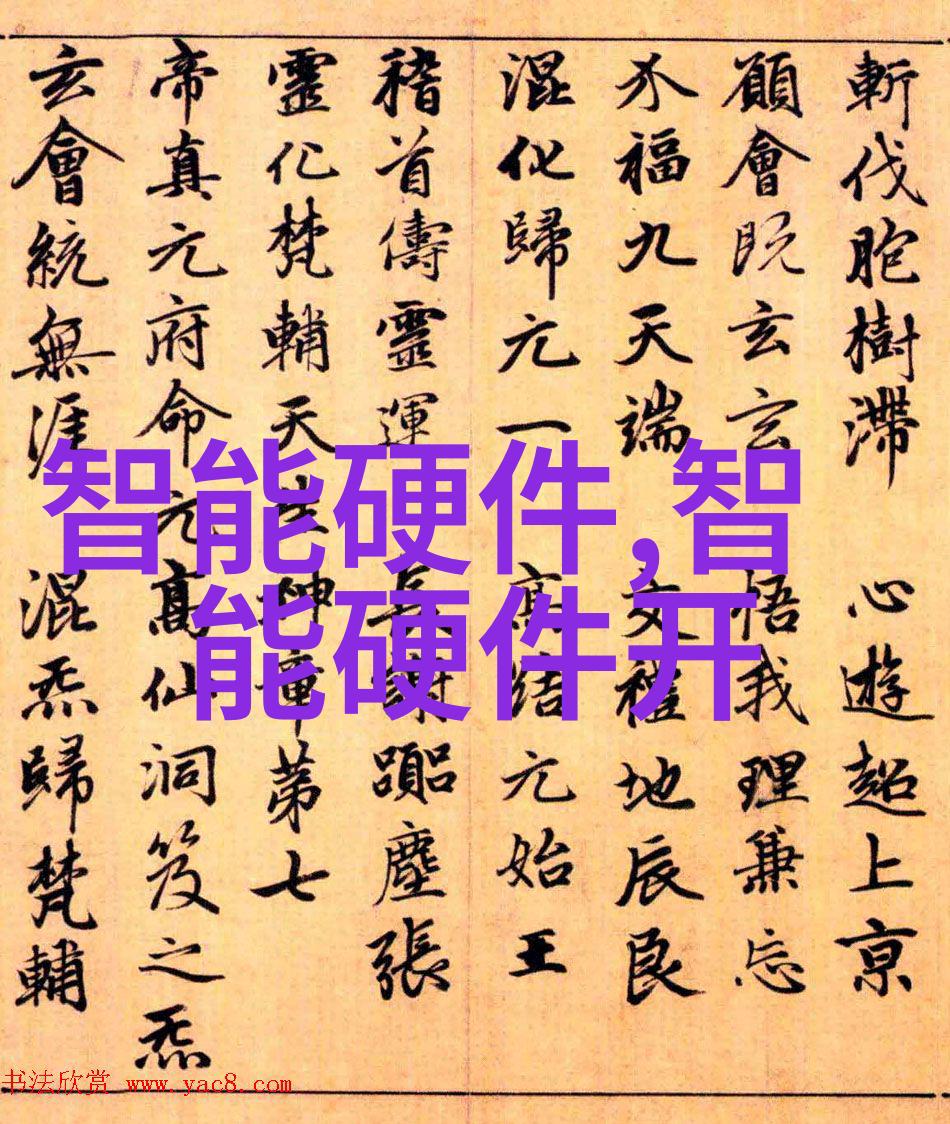 斬伐胞樹滯 心遊超上京
願會既玄玄 悟我理兼忘
水福九天端 文禮地辰良
混化歸元一 高結元始王
稽首儔靈運 長謝躡塵張
靈化梵輔天 章第七
帝真元府命元高仙洞笈之炁
玄會統無涯 混炁歸梵輔
智能硬件,智
能硬件开
书法欣赏 www.yac8.com